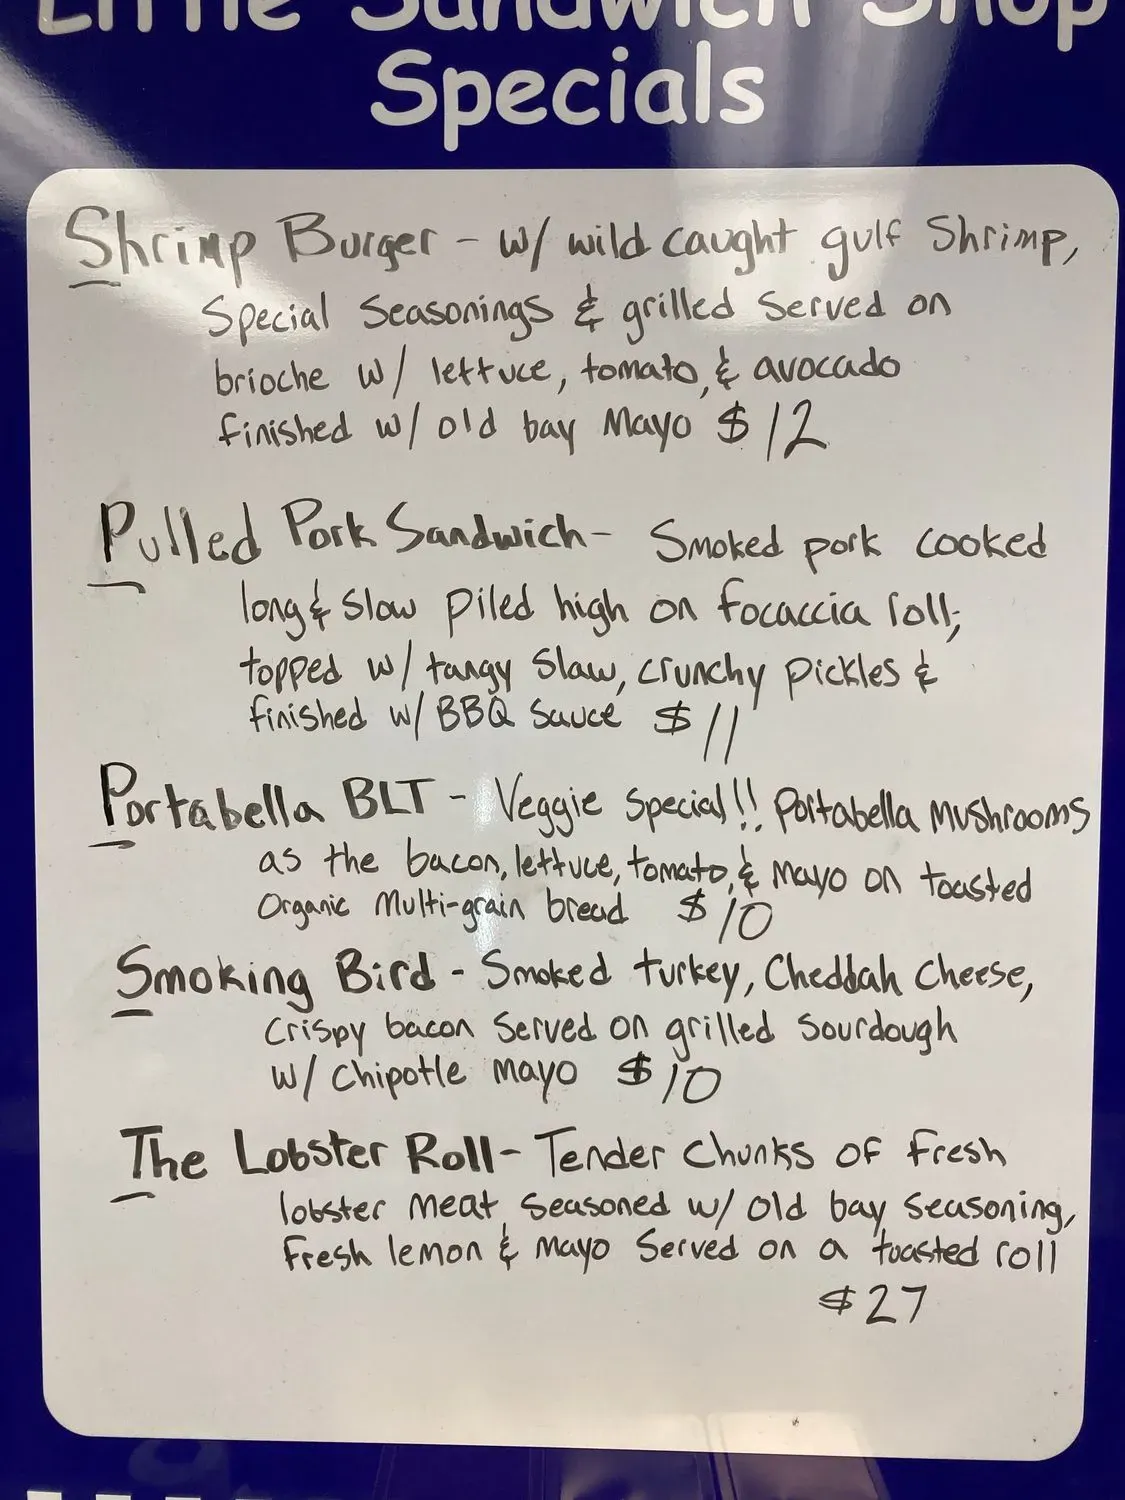 Little Sandwich Shop
Specials
Shrimp Burger - w/ wild caught gulf Shrimp,
Special Seasonings & grilled Served on
brioche w/ lettuce, tomato, & avocado
finished w/ old bay Mayo $12
Pulled Pork Sandwich - Smoked pork cooked
long & Slow piled high on focaccia roll;
topped w/ tangy Slaw, crunchy pickles &
finished w/ BBQ Sauce $11
Portabella BLT - Veggie Special!! Portabella Mushrooms
as the bacon, lettuce, tomato, & Mayo on toasted
Organic Multi-grain bread $10
Smoking Bird - Smoked turkey, Cheddah Cheese,
Crispy bacon Served on grilled Sourdough
w/ Chipotle mayo $10
The Lobster Roll - Tender Chunks of fresh
lobster meat Seasoned w/ old bay Seasoning,
fresh lemon & mayo Served on a toasted roll
$27